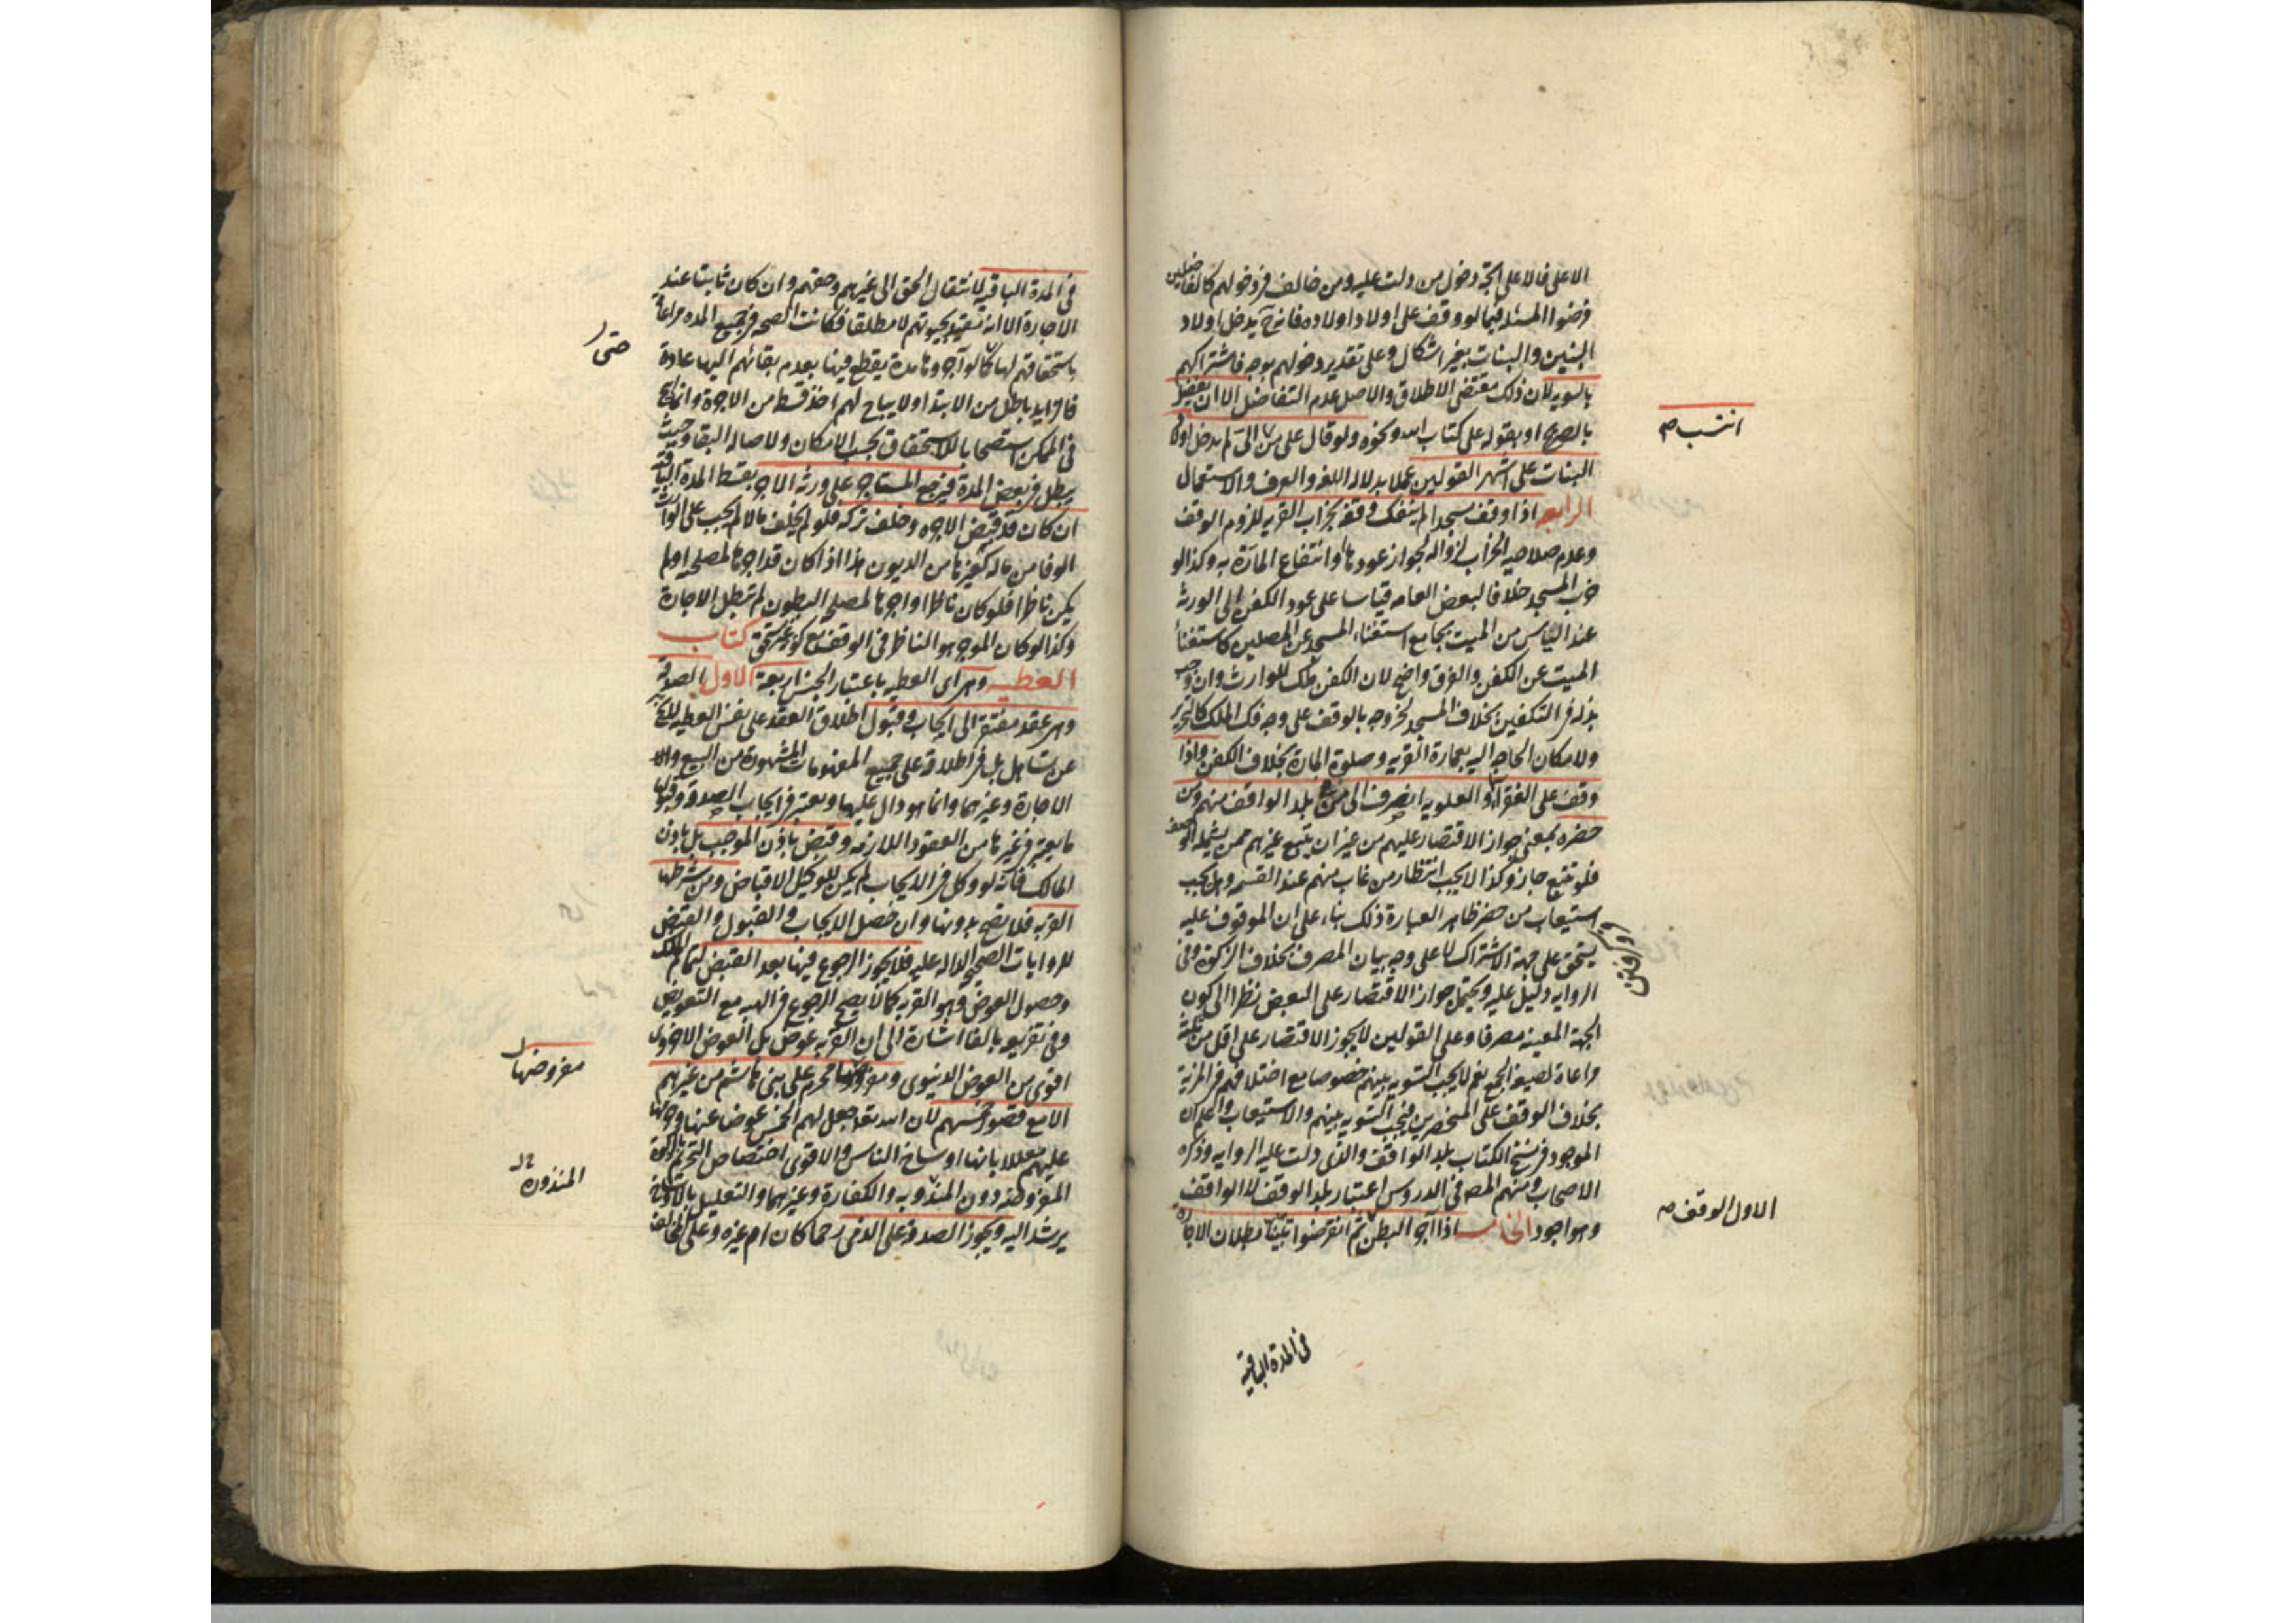 الاعلى فالاعلى اتجه دخول من دلت عليه ومن خالف فى دخولهم كالفاضلين
فرضوا المسئلة فيما لو وقف على اولاد اولاده فانه ح يدخل اولاد
البنين والبنات بغير اشكال وعلى تقدير دخولهم بوجه فاشتراكهم
بالسويه لان ذلك مقتضى الاطلاق والاصل عدم التفاضل الا ان يفضل
بالصريح او بقوله على كتاب الله ونحوه ولو قال على من الى لم يدخل اولاد
انتسب صح
البنات على اشهر القولين عملا بدلاله اللغه والعرف والاستعمال
الرابعه اذا وقف مسجدا لم ينفك وقفه بخراب القريه للزوم الوقف
وعدم صلاحيه الخراب لزواله لجواز عودها وانتفاع المارة به وكذا لو
خرب المسجد خلافا لبعض العامه قياسا على عود الكفن الى الورثه
عند الياس من الميت بجامع استغناء المسجد عن المصلين كاستغناء
الميت عن الكفن والفرق واضح لان الكفن ملك للوارث وان وجب
بذله فى التكفين بخلاف المسجد لخروجه بالوقف على وجه فك الملك كالتحرير
ولامكان الحاجه اليه بعمارة القريه وصلوة المارة بخلاف الكفن واذا
وقف على الفقراء او العلويه انصرف الى من فى بلد الواقف منهم ومن
حضره بمعنى جواز الاقتصار عليهم من غير ان يتتبع غيرهم ممن يشمله الوصف
فلو تتبع جاز وكذا لا يجب انتظار من غاب منهم عند القسمه وهل يجب
استيعاب من حضر ظاهر العبارة ذلك بناء على ان الموقوف عليه
يستحق على جهة الاشتراك لا على وجه بيان المصرف بخلاف الزكوة وفى
الروايه دليل عليه ويحتمل جواز الاقتصار على البعض نظرا الى كون
الجهة المعينه مصرفا وعلى القولين لا يجوز الاقتصار على اقل من ثلثة
مراعاة لصيغه الجمع نعم لا يجب التسويه بينهم خصوصا مع اختلافهم فى المزية
بخلاف الوقف على المنحصرين فيجب التسويه بينهم والاستيعاب واعلم ان
الموجود فى نسخ الكتاب بلد الواقف والذى دلت عليه الروايه وذكره
الاصحاب ومنهم المصه فى الدروس اعتبار بلد الوقف لا الواقف
وهو اجود الخامسه اذا آجر البطن ثم انقرضوا تبينا بطلان الاجارة
الاول الوقف صح
فى المدة الباقية
فى المدة الباقيه لانتقال الحق الى غيرهم وحقهم وان كان ثابتا عند
الاجارة الا انه مقيد بحيوتهم لا مطلقا فكانت الصحه فى جميع المده مراعاة
حتى
باستحقاقهم لها كما لو آجروها مدة يقطع فيها بعدم بقائهم اليها عادة
فالزايد باطل من الابتداء ولا يباح لهم اخذ قسطه من الاجرة وانما ابيح
فى الممكن استصحابا للاستحقاق بحسب الامكان ولاصاله البقاء وحيث
يبطل فى بعض المدة فيرجع المستاجر على ورثه الاجر بقسط المدة الباقية
ان كان قد قبض الاجره وخلف تركه فلو لم يخلف مالا لم يجب على الوارث
الوفا من ماله كغيرها من الديون هذا اذا كان قد اجرها لمصلحته او لم
يكن ناظرا فلو كان ناظرا واجرها لمصلحه البطون لم تبطل الاجارة
وكذا لو كان الموجر هو الناظر فى الوقف مع كونه غير مستحق كتاب
العطيه وهى اى العطيه باعتبار الجنس اربعة الاول الصدقه
وهى عقد مفتقر الى ايجاب وقبول اطلاق العقد على نفس العطيه لا يخ
عن تساهل بل فى اطلاقه على جميع المفهومات المشهورة من البيع و
الاجارة وغيرهما وانما هو دال عليها ويعتبر فى ايجاب الصدقه وقبولها
ما يعتبر فى غيرها من العقود اللازمه وقبض باذن الموجب بل باذن
المالك فانه لو وكل فى الايجاب لم يكن للوكيل الاقباض ومن شرطها
القربه فلا تصح بدونها وان حصل الايجاب والقبول والقبض
للروايات الصحيحه الداله عليه فلا يجوز الرجوع فيها بعد القبض لتمام الملك
وحصول العوض وهو القربه كما لا يصح الرجوع فى الهبه مع التعويض
وفى تفريعه بالفاء اشارة الى ان القربه عوض بل العوض الاخروى
اقوى من العوض الدنيوى ومفروضها محرم على بنى هاشم من غيرهم
مفروضها
الا مع قصور خمسهم لان الله تعه جعل لهم الخمس عوضا عنها وحرمها
عليهم معللا بانها اوساخ الناس والاقوى اختصاص التحريم بالزكوة
المفروضه دون المنذوبه والكفارة وغيرهما والتعليل بالاوساخ
المنذورة
يرشد اليه ويجوز الصدقه على الذمى رحما كان ام غيره وعلى المخالف